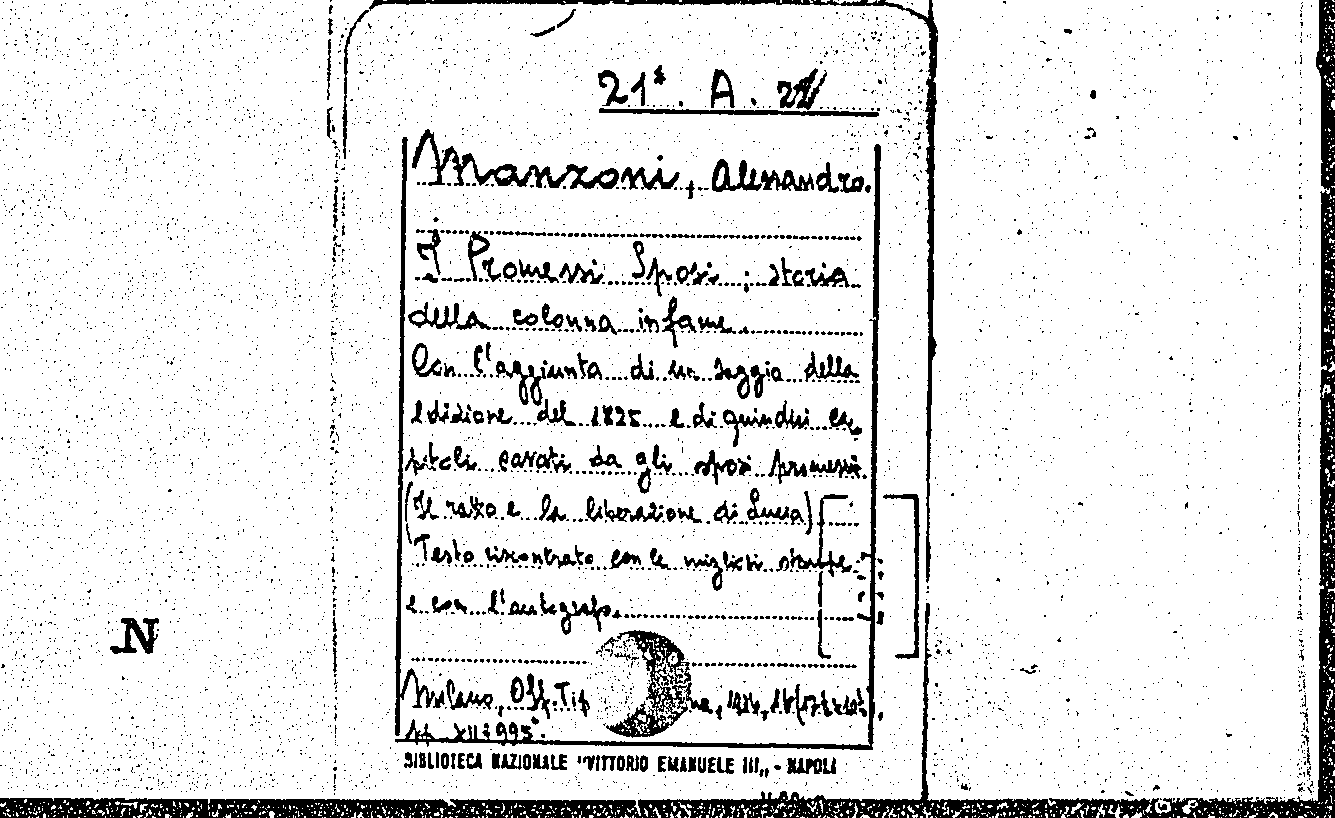 21ª. A.
Manzoni, Alessandro.
I Promessi Sposi; storia
della colonna infame.
Con l'aggiunta di un saggio della
edizione del 1825 e di quindici ca-
pitoli cavati da gli sposi promessi.
(Il ratto e la liberazione di Lucia)
Testo riscontrato con le migliori stampe
e con l'autografo.
Milano, Off. Tip
pp. XII + 995.
BIBLIOTECA NAZIONALE "VITTORIO EMANUELE III„ - NAPOLI
.N